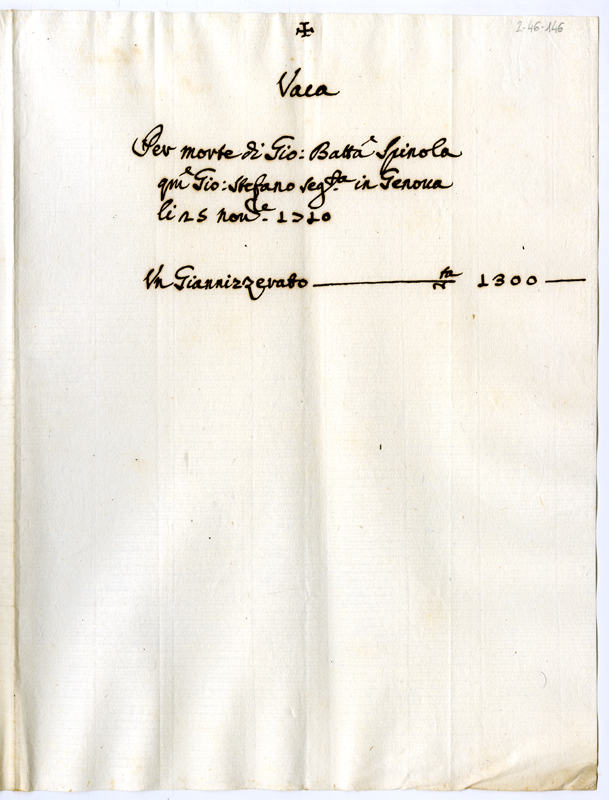 ✠
2-46-146
Vaca
Per morte di Gio: Batta Spinola
qm Gio: Stefano seg.ta in Genova
li 25 nov.e 1710
Vn Giannizzerato 1300